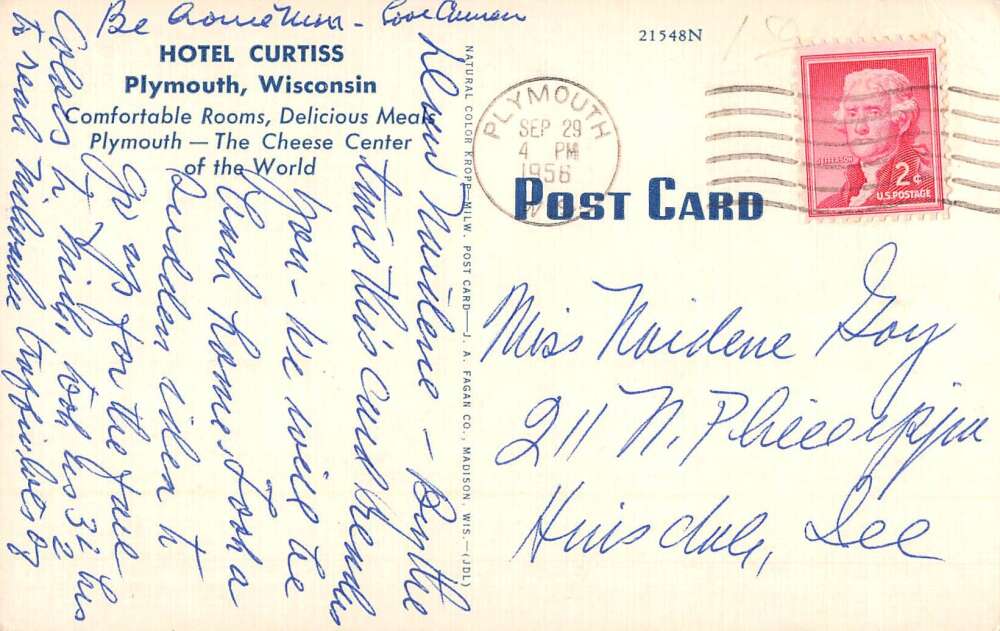 HOTEL CURTISS
Plymouth, Wisconsin
Comfortable Rooms, Delicious Meals
Plymouth — The Cheese Center
of the World
Dear Naidene – By the
time this card reaches
you – we will be
back home. Took a
sudden idea to
go up for the fall
colors
to reach Milwaukee
Be home Mon – Love
NATURAL COLOR KROPP—MILW. POST CARD—J. A. FAGAN CO., MADISON, WIS.—(JDL)
21548N
PLYMOUTH
SEP 29
4 PM
1956
JEFFERSON
2¢
U.S. POSTAGE
POST CARD
Miss Naidene Goy
211 N. Phillippa
Hinsdale, Ill